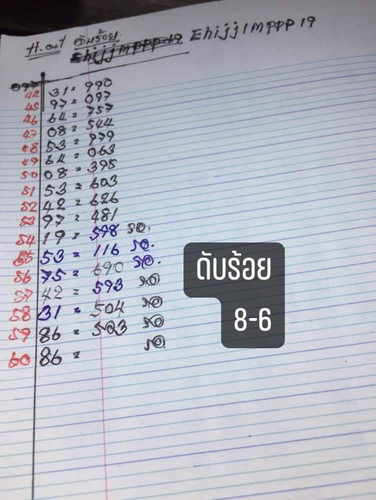 H. out ดับร้อย Ehijjlmppp-19 Ehijjlmppp 19
097
44 31 = 990
45 97 = 097
46 64 = 757
47 08 = 544
48 53 = 979
49 64 = 063
50 08 = 395
51 53 = 603
52 42 = 626
53 97 = 481
54 19 = 598 รอ.
55 53 = 116 รอ.
56 75 = 690 รอ.
57 42 = 593 รอ
58 31 = 504 รอ
59 86 = 523 รอ
60 86 = รอ.
ดับร้อย
8-6